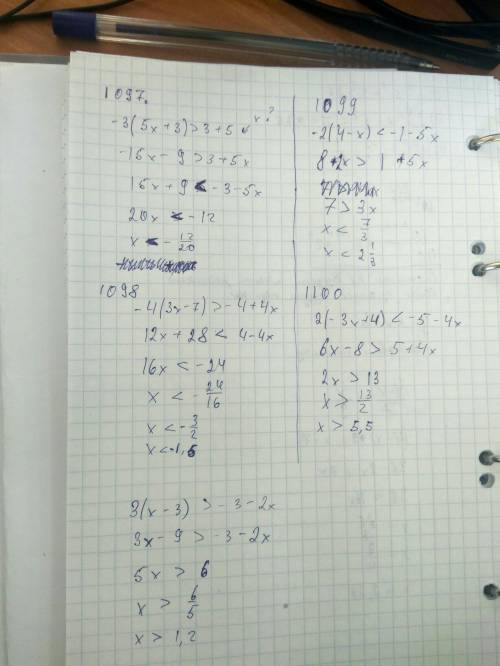 1097.
-3(5x+3)>3+5x x?
-15x-9>3+5x
15x+9<-3-5x
20x<-12
x<-12/20
1098
-4(3x-7)>-4+4x
12x+28<4-4x
16x<-24
x<-24/16
x<-3/2
x<-1,5
3(x-3)>-3-2x
3x-9>-3-2x
5x>6
x>6/5
x>1,2
1099
-2(4-x)<-1-5x
8+2x>1+5x
7>3x
x<7/3
x<2 1/3
1100
2(-3x+4)<-5-4x
6x-8>5+4x
2x>13
x>13/2
x>5,5